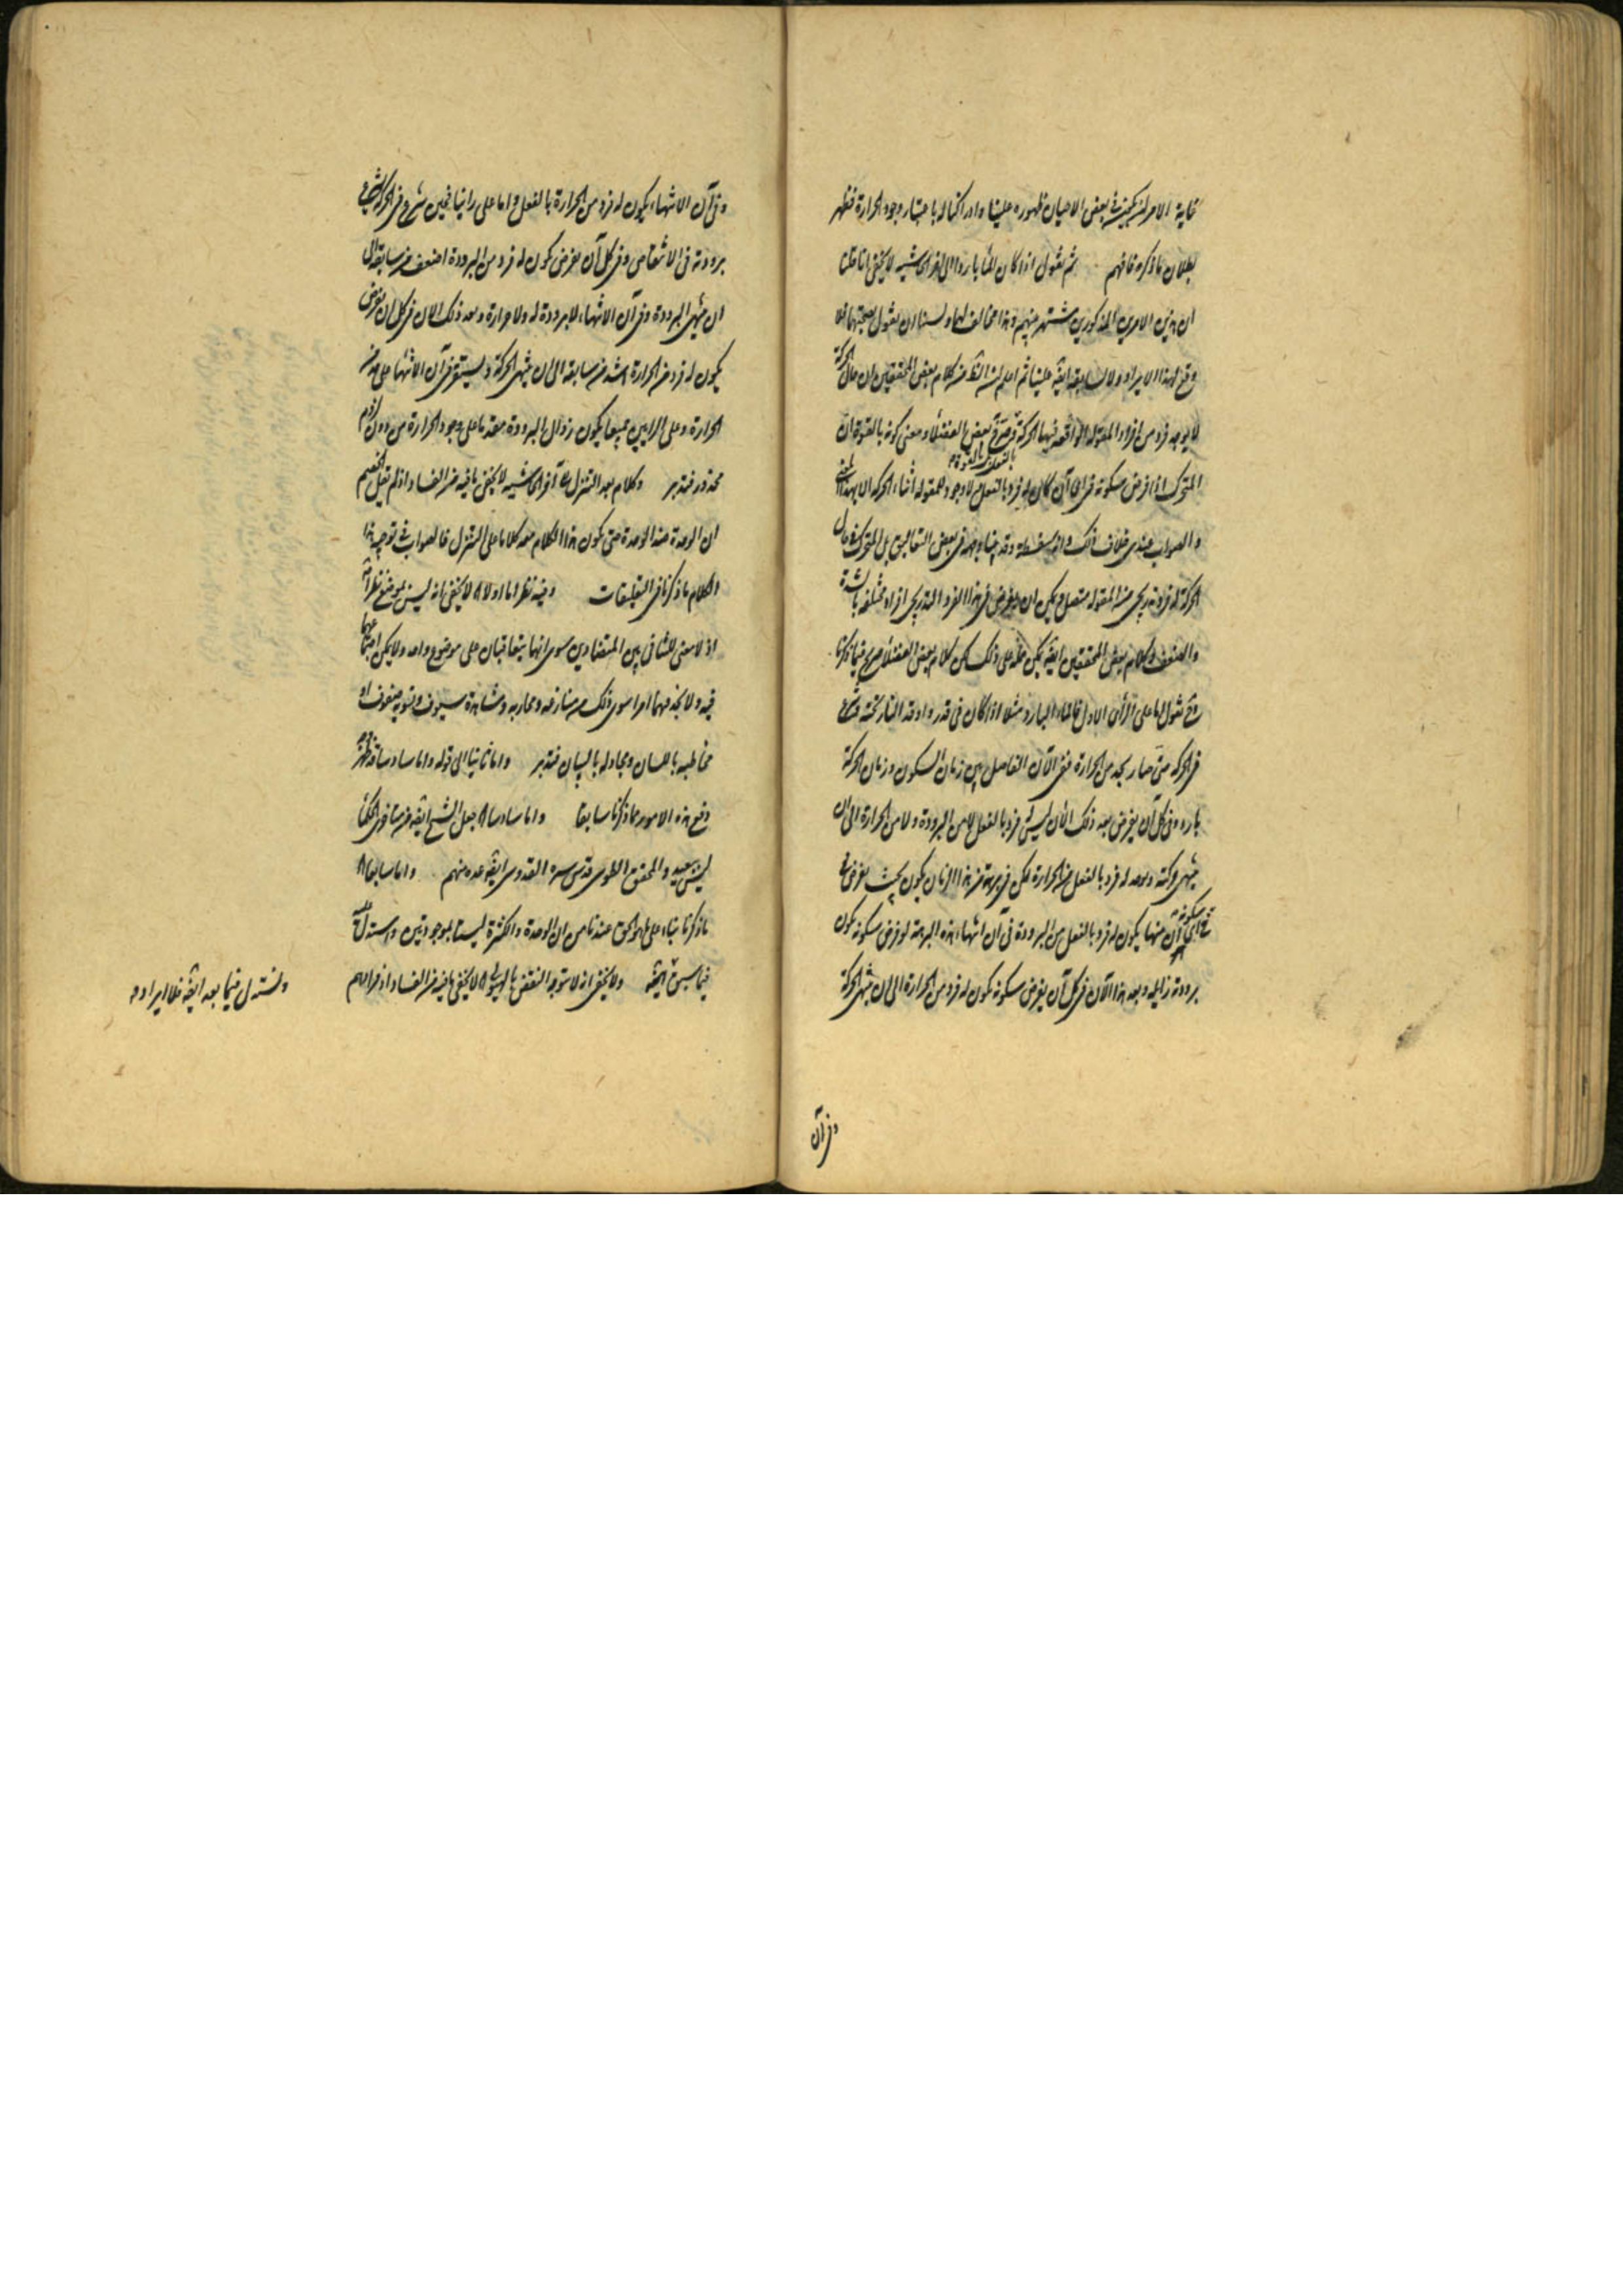 غاية الامر انه يكون في بعض الاحيان ظهوره علينا وادراكنا له باعتبار وجود الحرارة فظهر
بطلان ما ذكره فافهم ثم نقول اذا كان الماء باردا الى اخر الحاشيه لا يخفى انا قلنا
ان هذين الامرين المذكورين مشتهر منهم وهذا مخالف لهما ولسنا ان نقول بصحتهما فلا
وقع لهذا الايراد ولا لسابقه ايضا علينا ثم اعلم ان الظ من كلام بعض المحققين ان حال الحركة
لا يوجد فرد من افراد المقوله الواقعه فيها الحركة وصرح بعض الفضلاء ومعنى كونه بالقوة ان
المتحرك اذا فرض سكونه في اي آن كان له فرد بالفعل لا وجود للمقوله اثناء الحركه الا بهذا المعنى
والصواب عندي خلاف ذلك وانه سفسطة وقد بينا وجهه في بعض التعاليق بل المتحرك في حال
الحركة له فرد تدريجي من المقوله متصل ويمكن ان يفرض في هذا الفرد التدريجي افراد مختلفه بالشدة
والضعف وكلام بعض المحققين ايضا يمكن حمله على ذلك لكن كلام بعض الفضلاء صريح فيما ذكرنا
وح نقول اما على الرأي الاول فالماء البارد مثلا اذا كان في قدر واوقد النار تحته وشرع
في الحركه حتى صار بحد من الحرارة ففي الآن الفاصل بين زمان السكون وزمان الحركة
بارد وفي كل آن يفرض بعد ذلك الآن ليس له فرد بالفعل لا من البرودة ولا من الحرارة الى ان
ينتهي حركته وبعد له فرد بالفعل من الحرارة لكن في برهة من هذا الزمان يكون بحيث لو فرض
سكونه في اي آن منها يكون له فرد بالفعل من البرودة وفي آن انتهاء هذه البرهة لو فرض سكونه يكون
برودته زايله وبعد هذا الآن في كل آن يفرض سكونه يكون له فرد من الحرارة الى ان ينتهي الحركة
وفي آن
وفي آن الانتهاء يكون له فرد من الحرارة بالفعل واما على رأينا فحين شرع في الحركة يشرع
برودته في الانتقاص وفي كل آن يفرض يكون له فرد من البرودة اضعف من سابقه الى
ان ينتهي البرودة وفي آن الانتهاء لا برودة له ولا حرارة وبعد ذلك الآن في كل آن يفرض
يكون له فرد من الحرارة اشد من سابقه الى ان ينتهي الحركة ويستقر في آن الانتهاء على حد من
الحرارة وعلى الرايين جميعا يكون زوال البرودة مقدما على وجود الحرارة من دون لزوم
محذور فتدبر وكلام بعد التنزل الى آخر الحاشيه لا يخفى ما فيه من الفساد اذ لم يقل الخصم
ان الوحدة ضد الوحدة حتى يكون هذا الكلام معه كلاما على التنزل فالصواب في توجيه هذا
الكلام ما ذكرنا في التعليقات وفيه نظر اما اولا لا يخفى انه ليس موضع نظر انه
اذ لا معنى للتنافي بين المتضادين سوى انهما يتعاقبان على موضوع واحد ولا يمكن اجتماعهما
فيه ولا نجد فيهما امرا سوى ذلك من منازعه ومحاربه ومشاهرة سيوف وتسويه صفوف او
مخاطبه باللسان ومجادله بالبيان فتدبر واما ثانيا الى قوله واما سادسا قد ظهر
دفع هذه الامور مما ذكرنا سابقا واما سادسا جعل الشيخ ايضا من متأخري الحكماء
ليس ببعيد والمحقق الطوسي قدس سره القدوسي ايضا عده منهم واما سابعا
ما ذكرنا بناء على ما هو الحق عندنا من ان الوحدة والكثرة ليستا بموجودتين واستدل عليه
فيما سبق ايضا ولا يخفى انه لا يتوجه النقض بالهيولى لا يخفى ما فيه من الفساد
ونستدل فيما بعد ايضا فلا ايراد